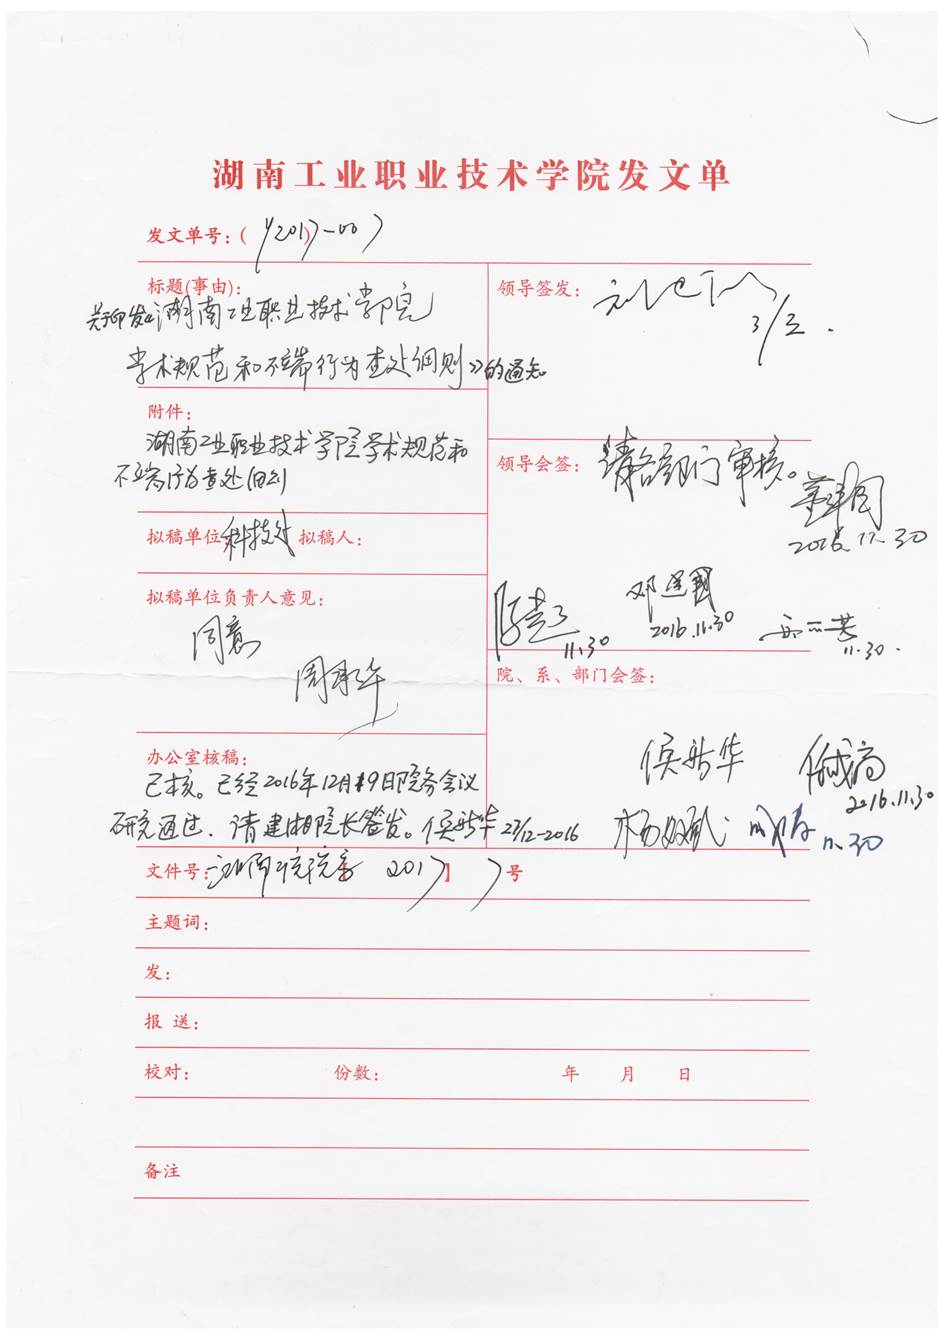 湖南工业职业技术学院发文单
发文单号：( 2017-007
标题(事由)：
关于印发《湖南工业职业技术学院
学术规范和不端行为查处细则》的通知
领导签发：
3/1.
附件：
湖南工业职业技术学院学术规范和
不端行为查处细则
领导会签：
请各部门审核。
2016.11.30
拟稿单位 科技处 拟稿人：
拟稿单位负责人意见：
同意
邓建国
2016.11.30
11.30
11.30.
院、系、部门会签：
办公室核稿：
已核。已经2016年12月19日院务会议
研究通过，请建湘院长签发。侯新华 27/12-2016
侯新华
2016.11.30
11.30
文件号： 2017】 7号
主题词：
发：
报 送：
校对： 份数： 年 月 日
备注